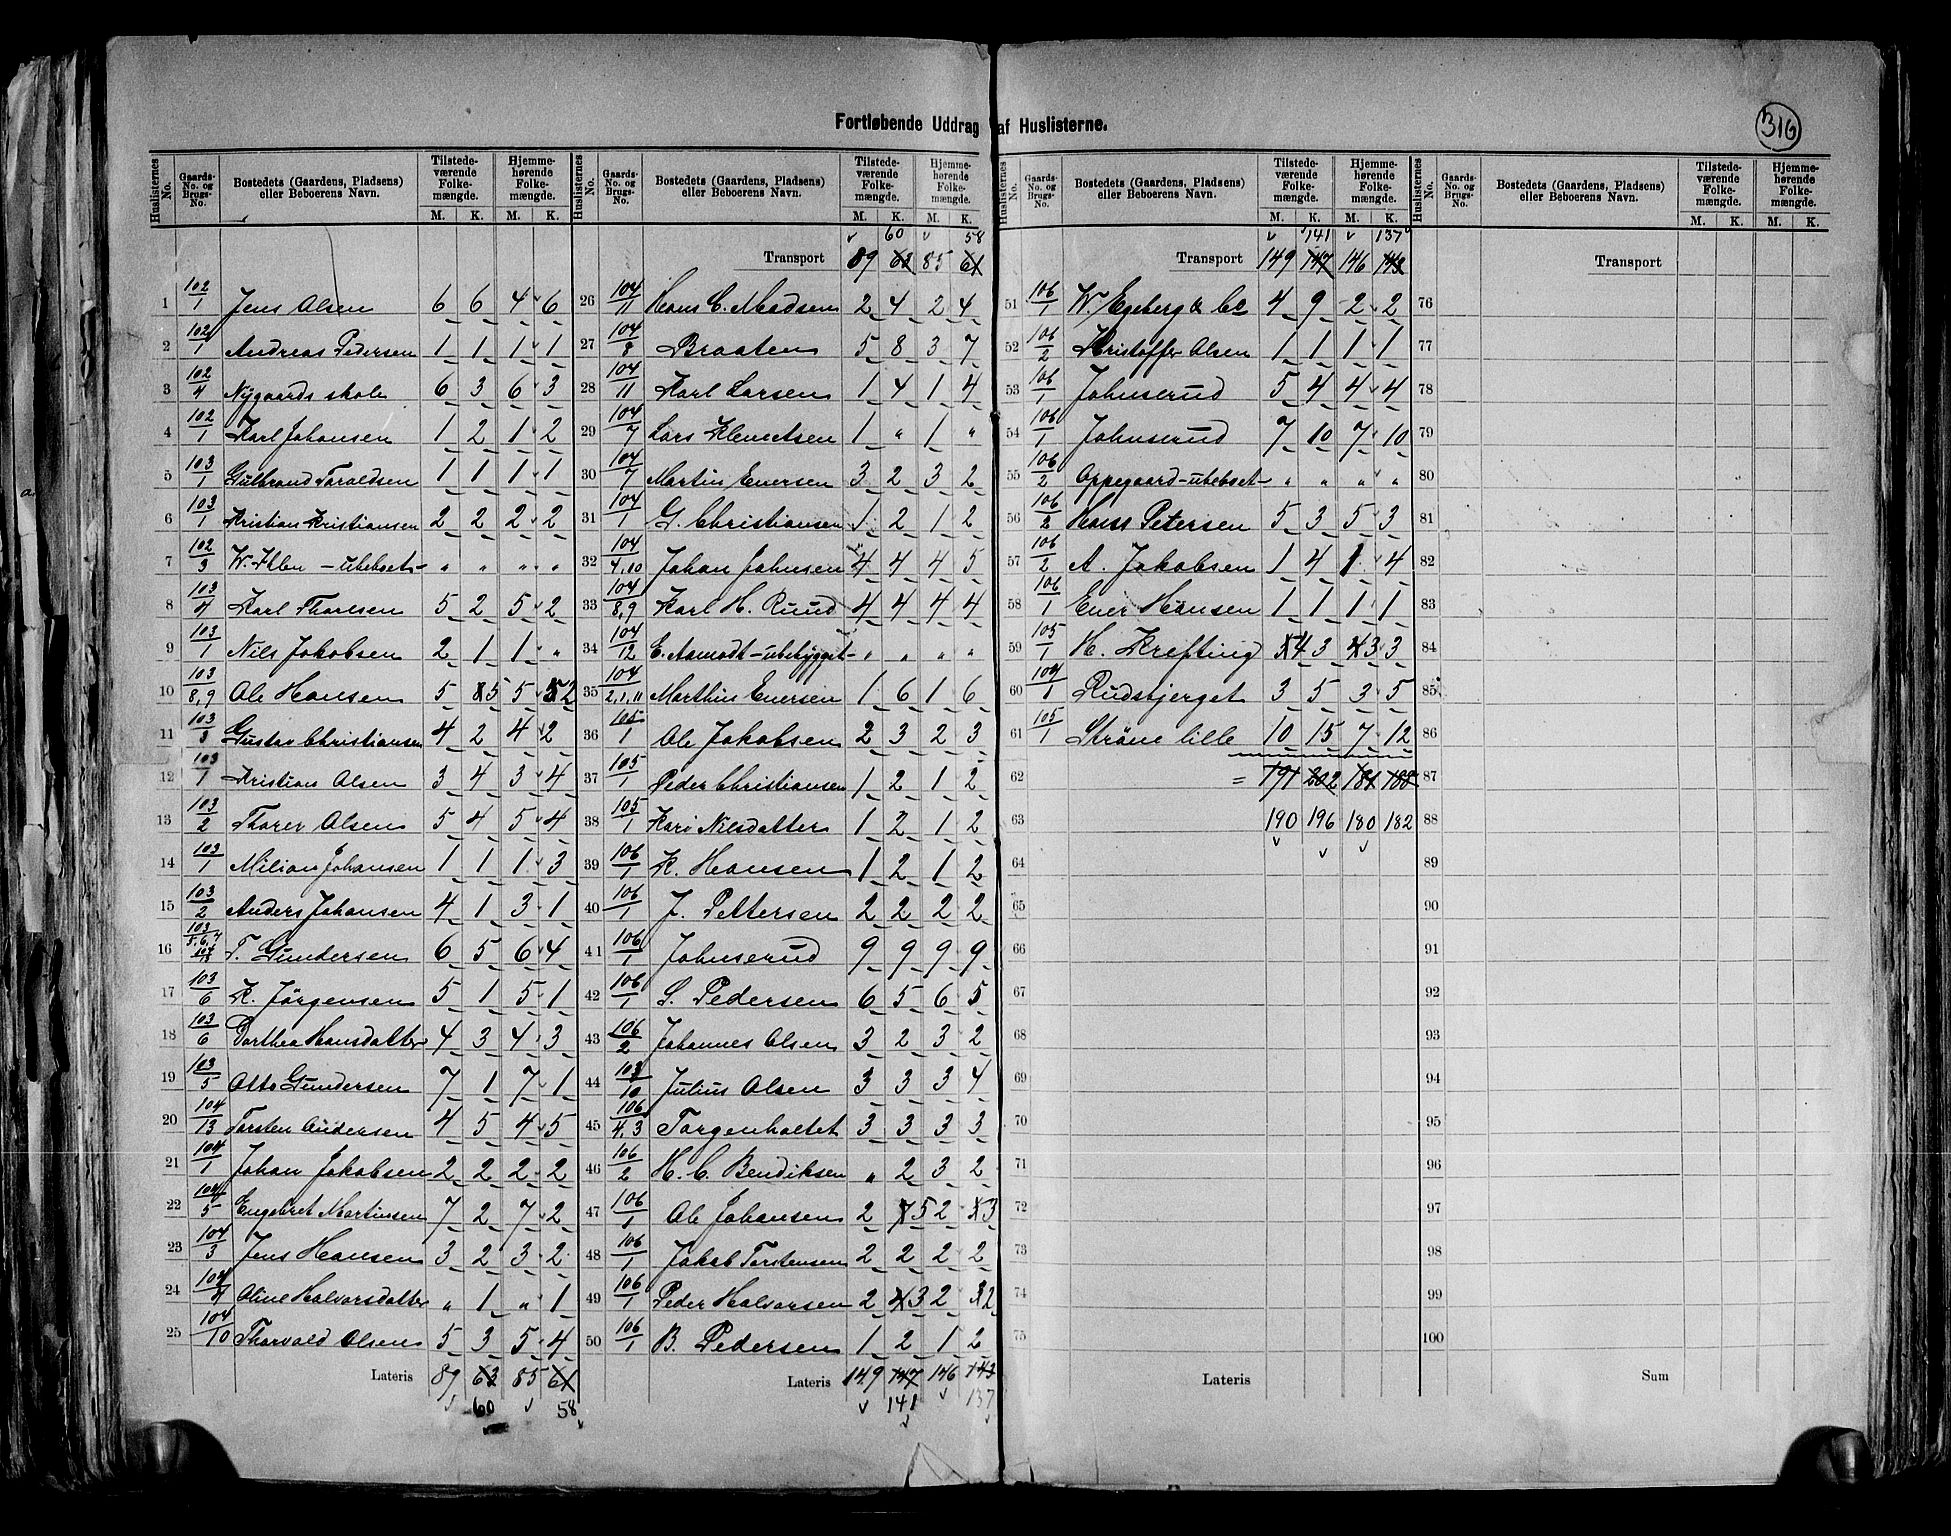 Fortløbende Uddrag af Huslisterne.
316
Huslisternes No. Gaards-No. og Brugs-No. Bostedets (Gaardens, Pladsens) eller Beboerens Navn. Tilstedeværende Folkemængde. M. K. Hjemmehørende Folkemængde. M. K.
1 102/1 Jens Olsen 6 6 4 6
2 102/1 Andreas Pedersen 1 1 1 1
3 102/4 Nygaards skole 6 3 6 3
4 102/1 Karl Johansen 1 2 1 2
5 103/1 Gulbrand Taraldsen 1 1 1 1
6 103/1 Kristian Kristiansen 2 2 2 2
7 102/3 W. Ihlen - ubeboet - " " " "
8 103/4 Karl Thoresen 5 2 5 2
9 103/1 Nils Jakobsen 2 1 1 "
10 103/8,9 Ole Hansen 5 5 5 2
11 103/3 Gustav Christiansen 4 2 4 2
12 103/1 Kristian Olsen 3 4 3 4
13 103/2 Thorer Olsen 5 4 5 4
14 103/1 Milian Johansen 1 1 1 3
15 103/2 Anders Johansen 4 1 3 1
16 103/5,6,7 T. Gundersen 6 5 6 4
17 103/6 K. Jørgensen 5 1 5 1
18 103/6 Dorthea Hansdatter 4 3 4 3
19 103/5 Otto Gundersen 7 1 7 1
20 104/13 Torsten Andersen 4 5 4 5
21 104/1 Johan Jakobsen 2 2 2 2
22 104/5 Engebret Martinsen 7 2 7 2
23 104/3 Jens Hansen 3 2 3 2
24 104/4 Oline Halvorsdatter " 1 " 1
25 104/10 Thorvald Olsen 5 3 5 4
Lateris 89 63 85 61
60 58
60 58
Transport 89 63 85 61
26 104/11 Hans C. Madsen 2 4 2 4
27 104/8 Braaten 5 8 3 7
28 104/11 Karl Larsen 1 4 1 4
29 104/7 Lars Klemetsen 1 " 1 "
30 104/7 Martin Evensen 3 2 3 2
31 104/1 G. Christiansen 1 2 1 2
32 104/4,10 Johan Johnsen 4 4 4 5
33 104/8,9 Karl H. Ruud 4 4 4 4
34 104/12 E. Aamodt - ubebygget - " " " "
35 104/2,1,11 Marthin Evensen 1 6 1 6
36 105/1 Ole Jakobsen 2 3 2 3
37 105/1 Peder Christiansen 1 2 1 2
38 105/1 Kari Nilsdatter 1 2 1 2
39 106/1 K. Hansen 1 2 1 2
40 106/1 J. Pettersen 2 2 2 2
41 106/1 Johnserud 9 9 9 9
42 106/1 S. Pedersen 6 5 6 5
43 106/2 Johannes Olsen 3 2 3 2
44 103/10 Julius Olsen 3 3 3 4
45 106/4,3 Torgenholtet 3 3 3 3
46 106/2 H. C. Bendiksen " 2 3 2
47 106/1 Ole Johansen 2 5 2 3
48 106/1 Jakob Torstensen 2 2 2 2
49 106/1 Peder Halvorsen 2 3 2 2
50 106/1 B. Pedersen 1 2 1 2
Lateris 149 147 146 143
141 137
Huslisternes No. Gaards-No. og Brugs-No. Bostedets (Gaardens, Pladsens) eller Beboerens Navn. Tilstedeværende Folkemængde. M. K. Hjemmehørende Folkemængde. M. K.
141 137
Transport 149 147 146 143
51 106/1 W. Egeberg & Co 4 9 2 2
52 106/2 Kristoffer Olsen 1 1 1 1
53 106/1 Johnserud 5 4 4 4
54 106/1 Johnserud 7 10 7 10
55 106/2 Oppegaard - ubeboet - " " " "
56 106/2 Hans Petersen 5 3 5 3
57 106/2 A. Jakobsen 1 4 1 4
58 106/1 Ener Hansen 1 1 1 1
59 105/1 H. Krefting 4 3 3 3
60 104/1 Rudsbjerget 3 5 3 5
61 105/1 Strøne lille 10 15 7 12
62 = 191 202 181 188
63 190 196 180 182
64
65
66
67
68
69
70
71
72
73
74
75
Lateris
Transport
76
77
78
79
80
81
82
83
84
85
86
87
88
89
90
91
92
93
94
95
96
97
98
99
100
Sum